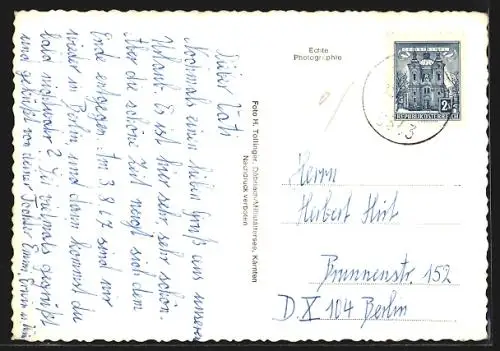 Lieber Vati
Nochmals einen lieben Gruß aus unserem
Urlaub. Es ist hier sehr sehr schön.
Aber die schöne Zeit neigt sich dem
Ende entgegen. Am 3.8.67 sind wir
wieder in Berlin, und dann kommst du
bald mal wieder? Sei vielmals gegrüßt
und geküßt von deiner Tochter Erwin u.
Foto H. Tollinger, Döbriach-Millstättersee, Kärnten
Nachdruck verboten
Echte
Photographie
2 S
REPUBLIK ÖSTERREICH
Herrn
Herbert Hirt
Brunnenstr. 152
D.X 104 Berlin